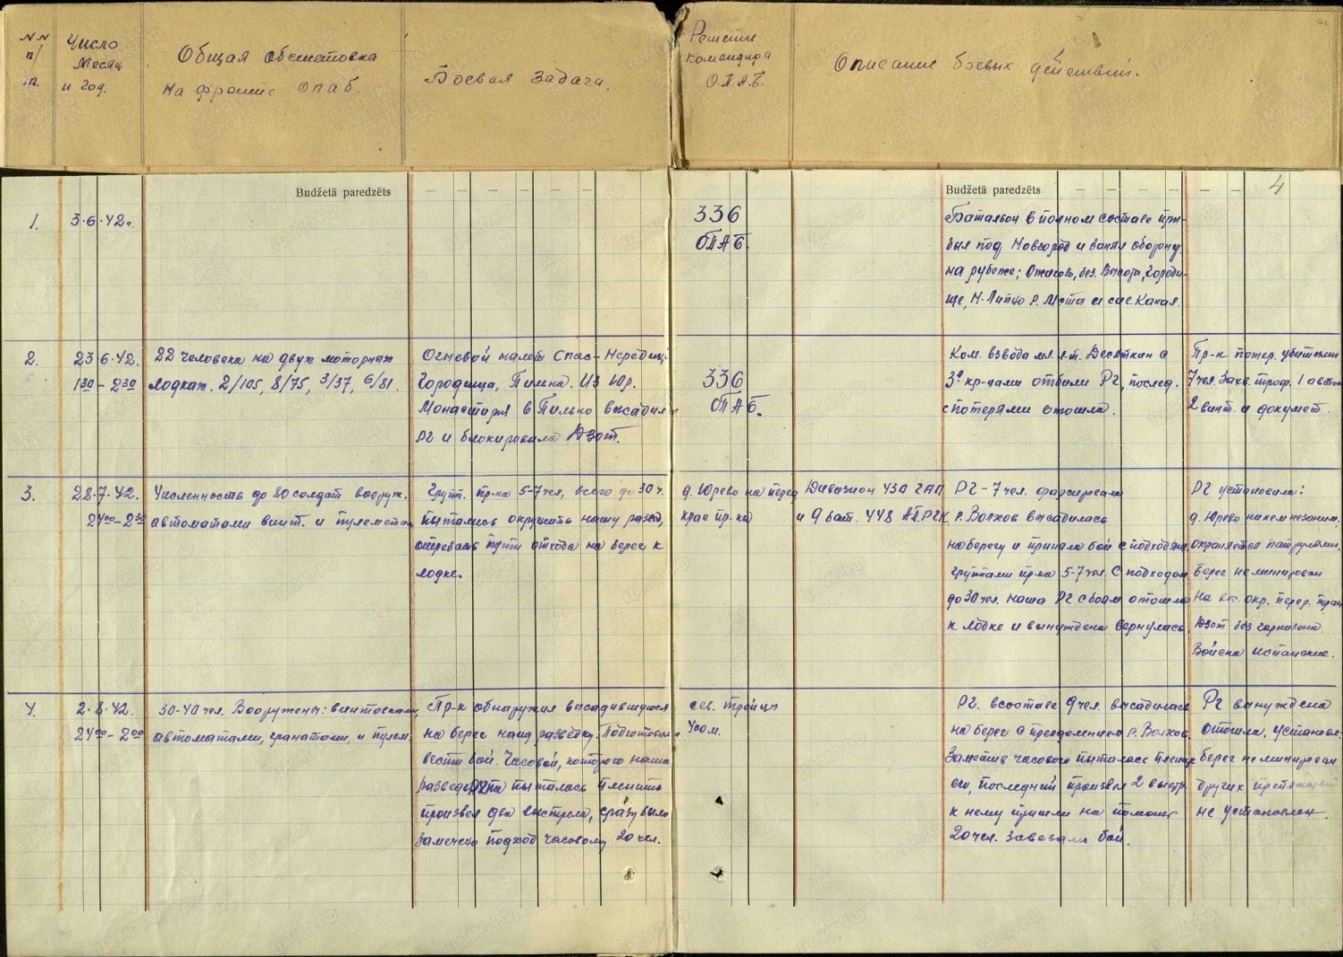 NN п/п.
Число
Месяц
и год.
Общая обстановка
на фронте ОПАБ.
Боевая задача.
Решение
командира
О.П.А.Б.
Описание боевых действий.
Budžetā paredzēts
Budžetā paredzēts
4
1.
3.6.42г.
336
ОПАБ.
Батальон в полном составе при-
был под Новгород и занял оборону
на рубеже; без. Высота, Городи-
ще, Н-Липко р. Мста и сив Канал.
2.
23.6.42.
1 30 – 2 30
22 человека на двух моторных
лодках. 2/105, 8/75, 3/37, 6/81.
Огневой налет Спас-Нередиц.
Городища, Из Юр.
Монастыря в высадил
РГ и блокировала Дзот.
336
ОПАБ.
Ком. взвода мл. л-т. Десяткин с
3й кр-цами отбили РГ, послед.
с потерями отошла.
Пр-к потер. убитыми
7 чел. Захв. троф. 1 автом
2 винт. и документ.
3.
28.7.42.
24 00 – 2 30
Численность до 30 солдат вооруж.
автоматами винт. и пулеметом
Групп. пр-ка 5-7 чел, всего до 30 ч.
пытались окружить нашу развед,
отрезать пути отхода на берег к
лодке.
д. Юрьево на перед
крае пр-ка
Дивизион 430 ГАП
и 9 бат. 448 АПРГК
РГ – 7 чел. форсировала
р. Волхов высадилась
на берегу и приняла бой с подходящ.
группами пр-ка 5-7 чел. С подходом
до 30 чел. наша РГ с боем отошла
к лодке и вынуждена вернулась
РГ установила:
д. Юрьево никем не заним.
охраняется патрулями
берег не минирован
На окр. перер. тран
Дзот без гарнизона.
Войска испанские.
4.
2.8.42.
24 00 – 2 00
30-40 чел. Вооружены: винтовками,
автоматами, гранатами, и пулем.
Пр-к обнаружил высадившуюся
на берег нашу разведку. Подготовил.
вести бой. Часовой, которого наша
разведгруппа пыталась пленить
произвел два выстрела, сразу было
замечено подход часовому 20 чел.
сев. троицы
Усом.
РГ. в составе 9 чел. высадилась
на берег с преодолением р. Волхов
Заметив часового пыталась пленить
его, последний произвел 2 выстр.
к нему пришли на помощь
20 чел. Завязали бой.
РГ вынуждена
отошла, установ.
берег не минирован
других препятствий
не установлен.